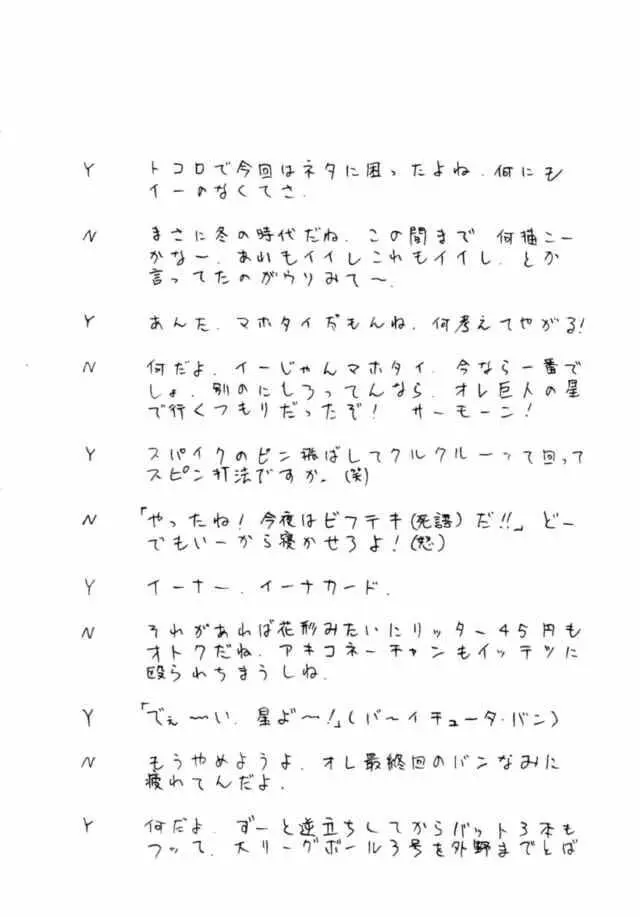 Y トコロで今回はネタに困ったよね.何にも
イーのなくてさ.
N まさに冬の時代だね.この間まで 何描こー
かなー.あれもイイしこれもイイし.とか
言ってたのがウリみて〜.
Y あんた.マホタイだもんね.何考えてやがる!
N 何だよ.イーじゃんマホタイ.今なら一番で
しょ.別のにしろってんなら.オレ巨人の星
で行くつもりだったぞ! サーモーン!
Y スパイクのピン飛ばしてクルクルーって回って
スピン打法ですか。(笑)
N 「やったね!今夜はビフテキ(死語)だ!!」どー
でもいーから寝かせろよ!(怒)
Y イーナー.イーナカード.
N それがあれば花形みたいにリッター45円も
オトクだね.アキコネーチャンもイッテツに
殴られちまうしね.
Y 「でぇ〜〜い.星よ〜!」(バ〜イチュータ・バン)
N もうやめようよ.オレ最終回のバンなみに
疲れてんだよ.
Y 何だよ.ずーと逆立ちしてからバット3本も
フッて.大リーグボール3号を外野までとば